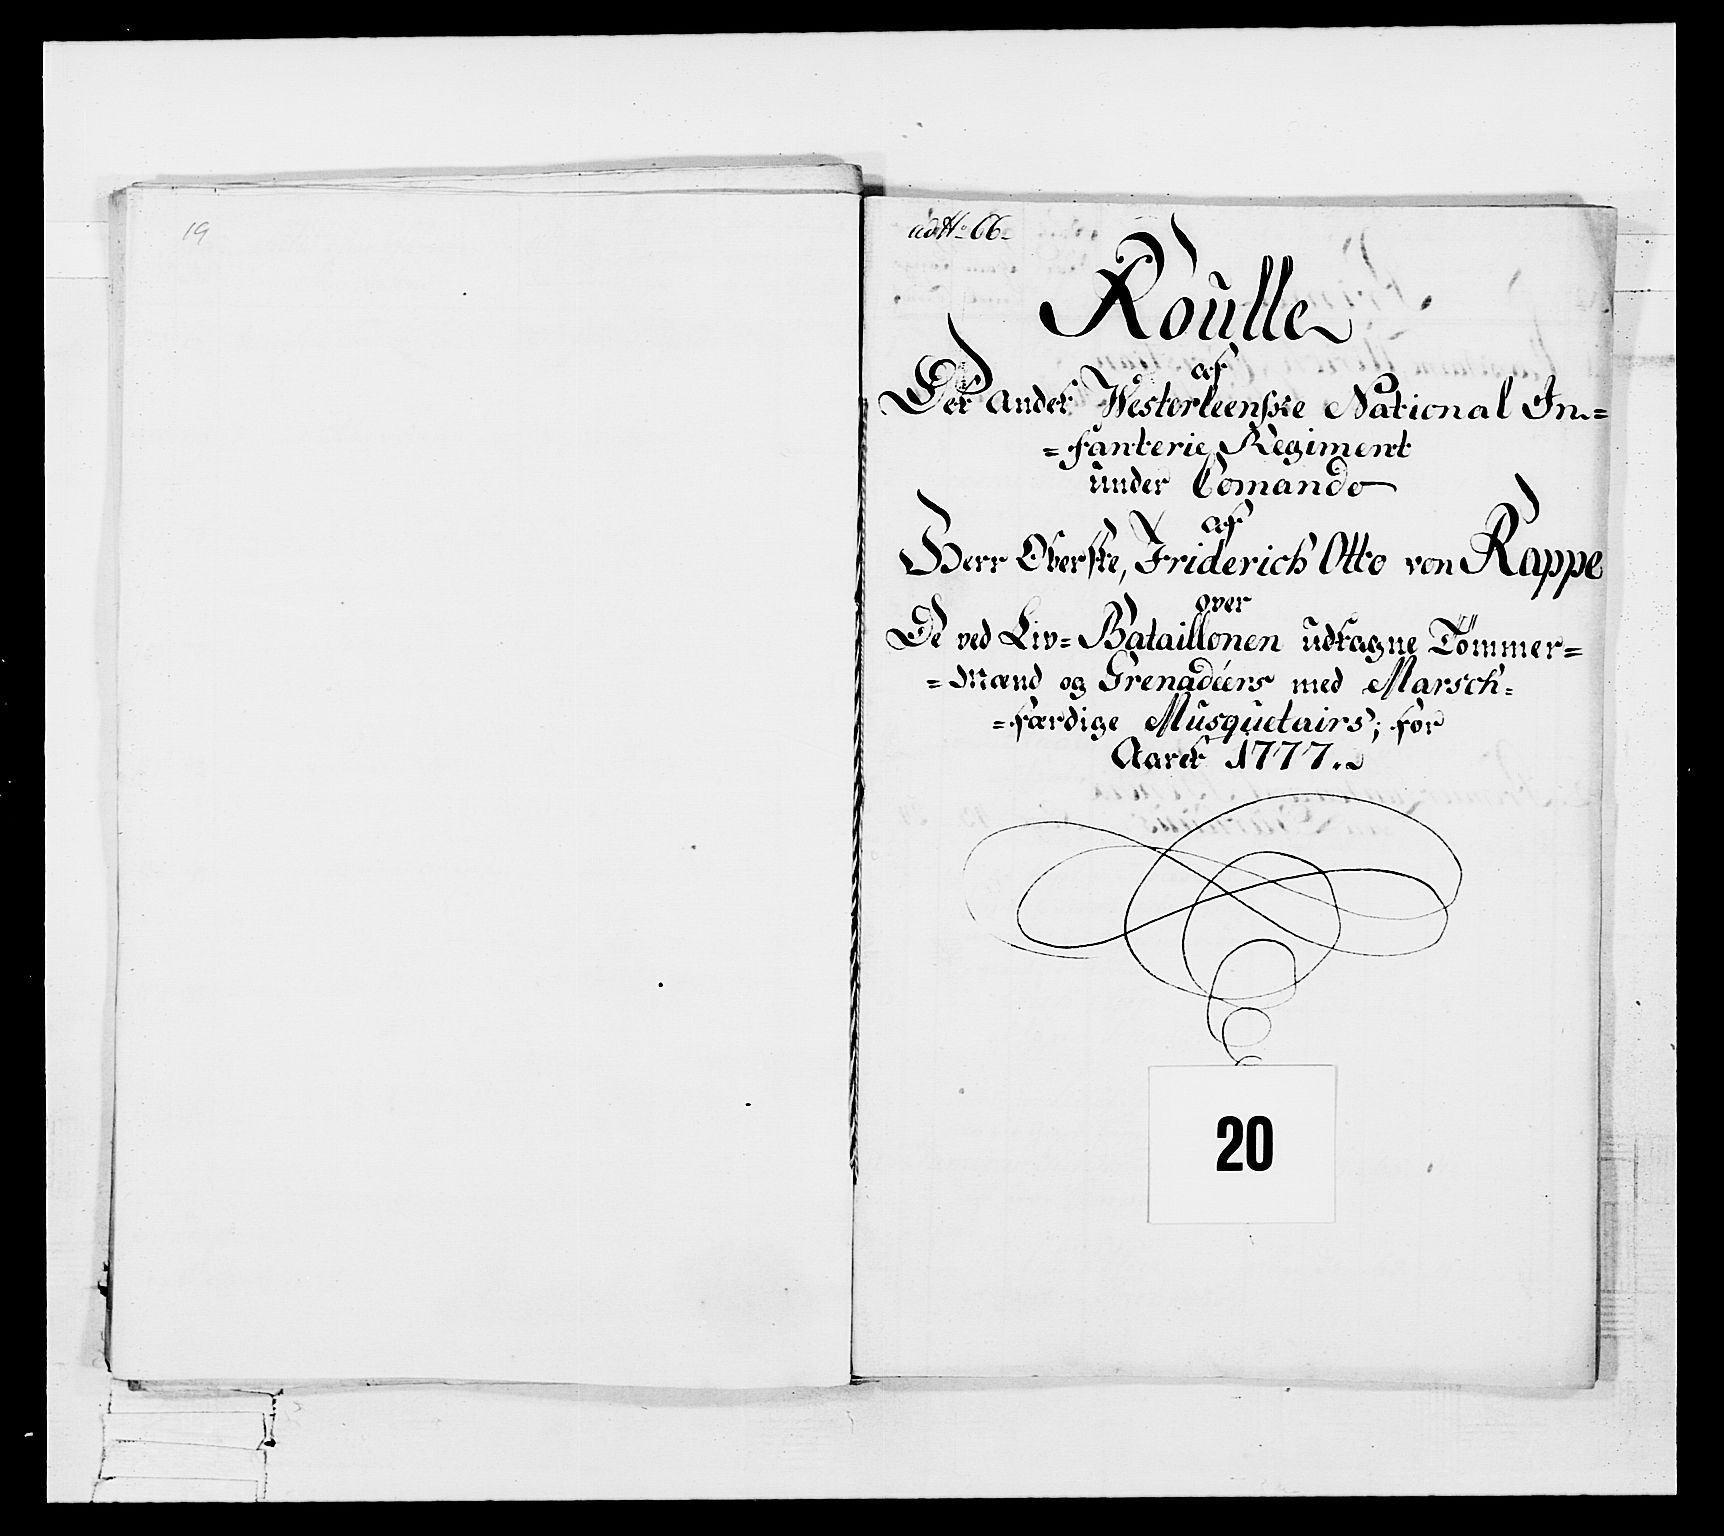 19
ad No 66.
Roülle
af
Det andet Westerleenske National In=
=fanterie Regiment
ünder Comando
af
Herr Oberste, Friderich Otto von Rappe
over
De ved Liv=Bataillonen üdtagne Tömmer=
=Mænd og Grenadéers med Marsch=
=færdige Müsquetairs; for
Aaret 1777.
20